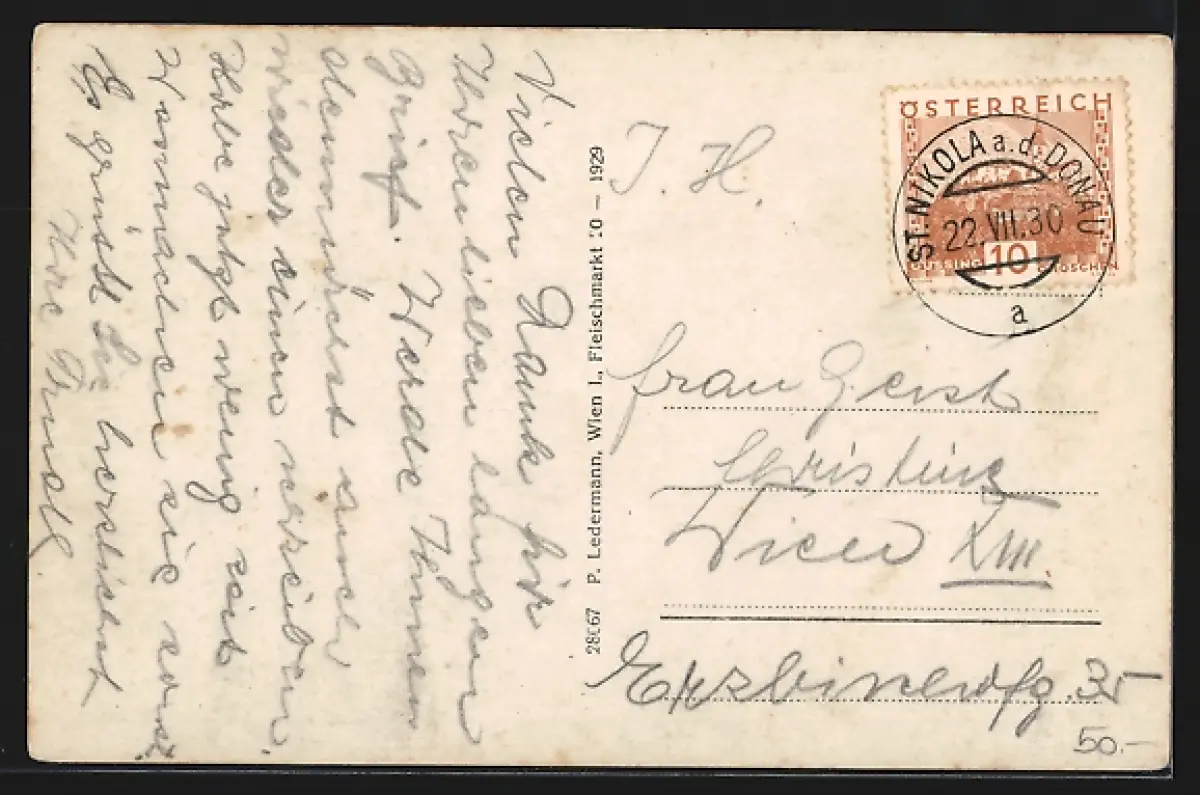 Vielen Dank für
Ihren lieben langen
Brief. Werde Ihnen
demnächst auch
wieder einen
Habe jetzt wenig Zeit
sie sonst
Es grüsst Sie herzlichst
Ihre
28067 P. Ledermann, Wien I., Fleischmarkt 20 — 1929
I. H.
ÖSTERREICH
ST. NIKOLA a. d. DONAU
22. VII. 30
GÜSSING 10 GROSCHEN
a
Frau Gerst
Christine
Wien XIII.
35
50.-